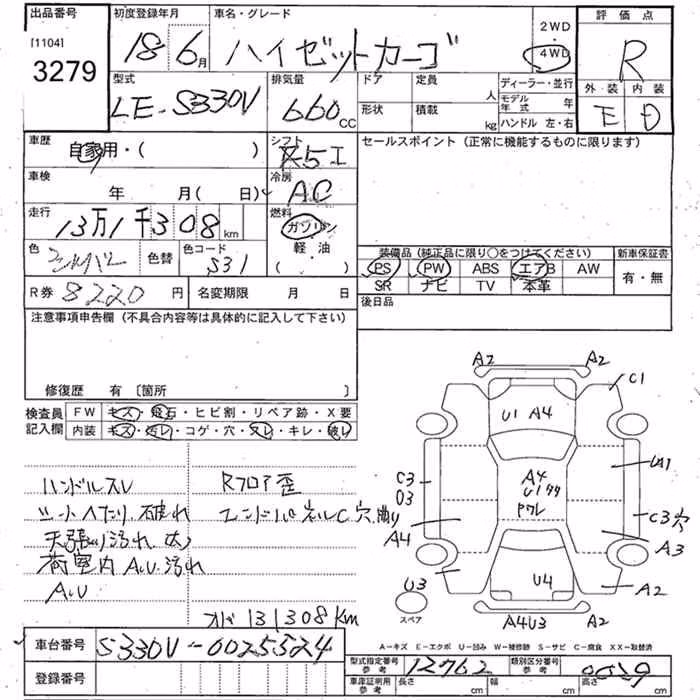 出品番号 初度登録年月 車名・グレード 2WD 評価点
[1104] 18年6月 ハイゼットカーゴ 4WD R
3279
型式 排気量 ドア 定員 人 ディーラー・並行 外・装 内装
LE-S330V 660cc 形状 積載 kg モデル年式 年 E D
ハンドル 左・右
車歴 自家用・( ) シフト 5 セールスポイント(正常に機能するものに限ります)
車検 年 月( 日) 冷房 AC
走行 13万1千308km 燃料 ガソリン
軽・油
( ・ )
色 シルバー 色替 色コード S31 装備品(純正品に限り○をつけてください) 新車保証書
PS PW ABS エアB AW 有・無
R券 8220円 名変期限 月 日 SR ナビ TV 本革
後日品
注意事項申告欄(不具合内容等は具体的に記入して下さい)
修復歴 有〔箇所 〕
検査員 FW キズ・飛石・ヒビ割・リペア跡・X要
記入欄 内装 キズ・汚レ・コゲ・穴・スレ・キレ・破レ
A2 A2
C1
U1 A4
ハンドルスレ Rフロア歪
シートヘたり、破れ エンドパネルC穴、曲り
天張り汚れ、大
荷室内AU、汚れ
AU
C3 A4 UA1
O3 U1 C3穴
A4 A3
U3 U4 A2
A4U3 A2
スペア
オドバ 131308Km
A-キズ E-エクボ U-凹み W-補修跡 S-サビ C-腐食 XX-取替済
車台番号 S330V-0025524
登録番号
型式指定番号 参考 12762 類別区分番号 参考 0029
車庫証明用 参考 長さ cm 幅 cm 高さ cm